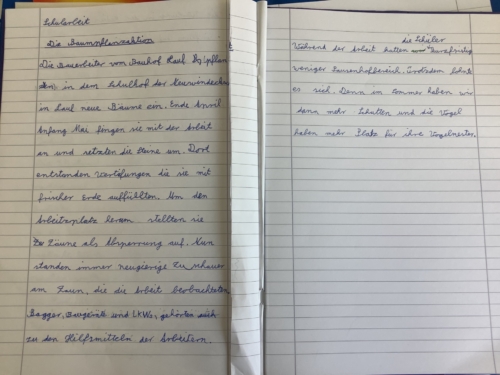 Schularbeit
Die Baumpflanzaktion
Die Bauarbeiter vom Bauhof Hauf
in dem Schulhof der
in Lauf neue Bäume ein. Ende April
Anfang Mai fingen sie mit der Arbeit
an und setzten die Steine um. Dort
entstanden Vertifungen die sie mit
frischer Erde auffühlten. Um den
Arbeitsplatz stellten sie
Zäune als Absperrung auf. Nun
standen immer neugierige Zuschauer
am Zaun, die die Arbeit beobachteten.
Bagger, und LKWs, gehörten
zu den Hilfsmitteln der Arbeitern.
die Schüler
Während der Arbeit hatten
weniger Pausenhofbereich. lohnte
es sich. Denn im Sommer haben wir
dann mehr Schatten und die Vögel
haben mehr Platz für ihre Vogelnester.